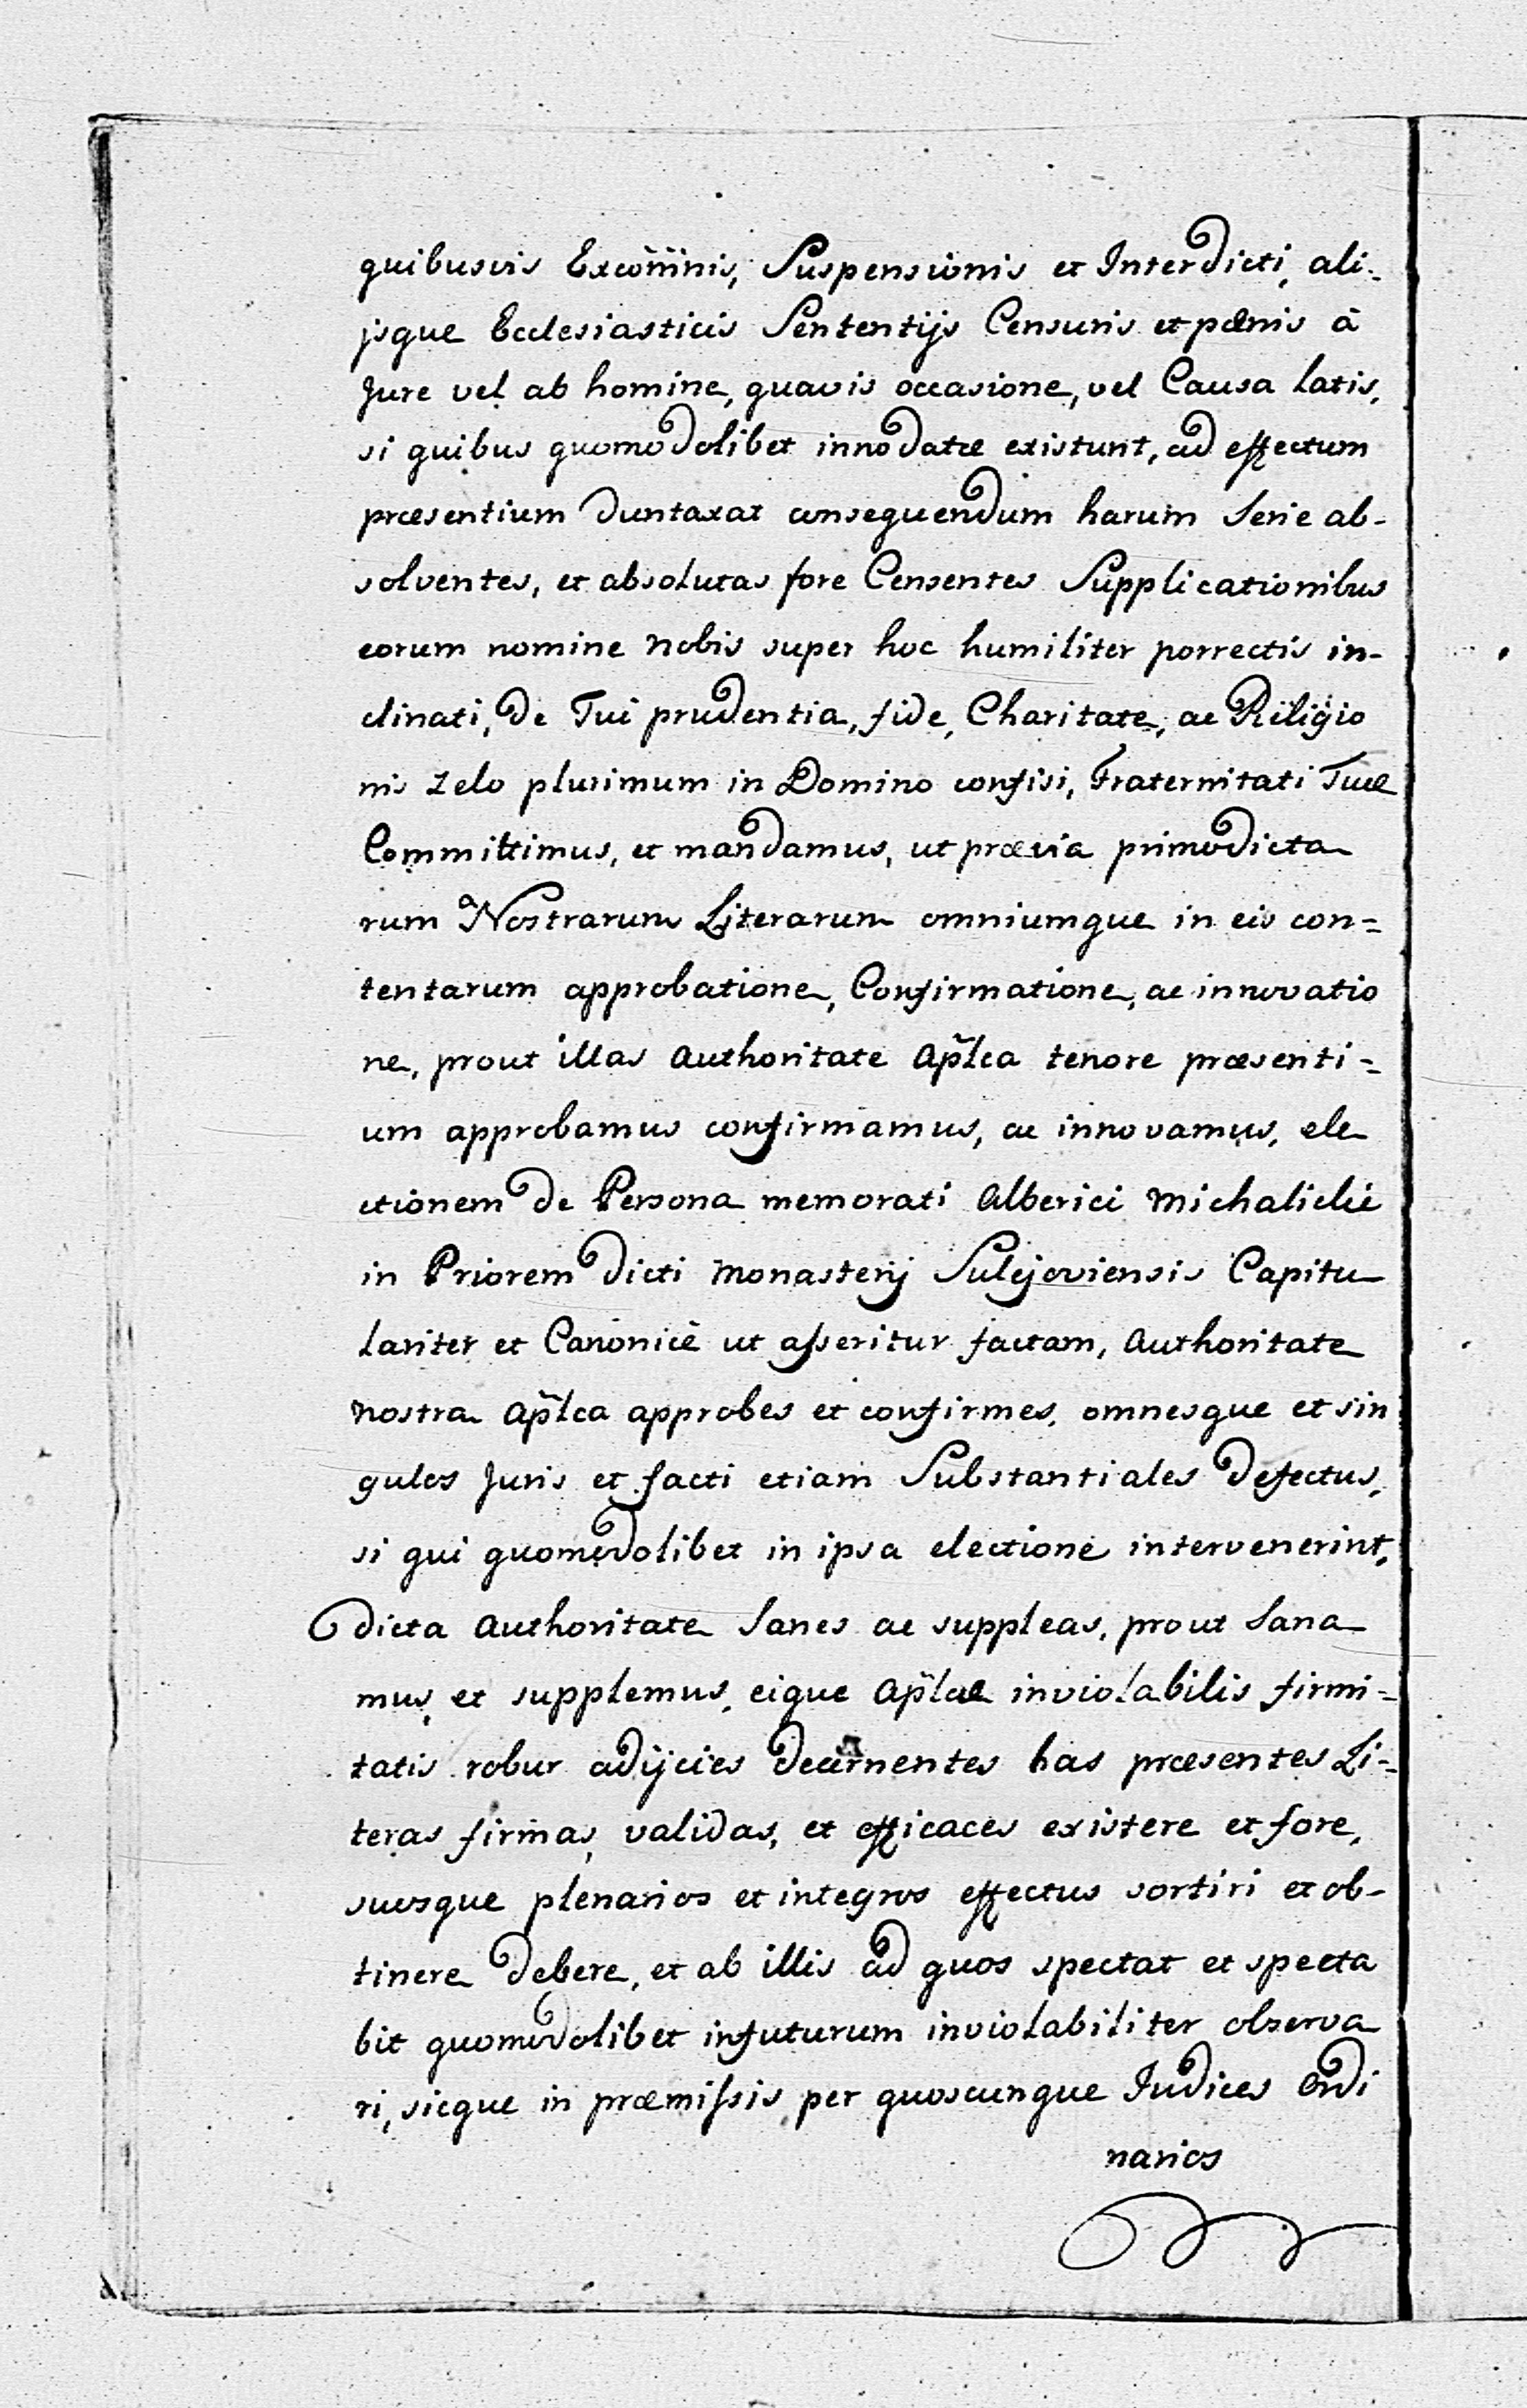 quibusvis Excõm̃nis, Suspensionis et Interdicti, ali-
jsque Ecclesiasticis Sententijs Censuris et pænis à
Jure vel ab homine, quavis occasione, vel Causa latis,
si quibus quomodolibet innodatæ existunt, ad effectum
præsentium duntaxat consequendum harum Serie ab-
solventes, et absolutas fore Censentes Supplicationibus
eorum nomine nobis super hoc humiliter porrectis in-
clinati, de Tui prudentia, fide, Charitate, ac Religio
nis zelo plurimum in Domino confisi, Fraternitati Tuæ
Committimus, et mandamus, ut prævia primodicta
rum Nostrarum Literarum omniumque in eis con=
tentarum approbatione, Confirmatione, ac innovatio
ne, prout illas Authoritate Ap̃lca tenore præsenti=
um approbamus confirmamus, ac innovamus, ele
ctionem de Persona memorati Alberici Michalicki
in Priorem dicti Monasterij Sulejoviensis Capitu
lariter et Canonicè ut asseritur factam, Authoritate
Nostra Ap̃lca approbes et confirmes, omnesque et sin
gulos Juris et facti etiam Substantiales defectus,
si qui quomodolibet in ipsa electione intervenerint,
dicta Authoritate Sanes ac suppleas, prout Sana
mus, et supplemus, eique Ap̃læ inviolabilis firmi=
tatis robur adijcies decernentes has præsentes Li=
teras firmas, validas, et efficaces existere et fore,
suosque plenarios et integros effectus sortiri et ob-
tinere debere, et ab illis ad quos spectat et specta
bit quomodolibet infuturum inviolabiliter observa
ri, sicque in præmissis per quoscunque Iudices Ordi
narios